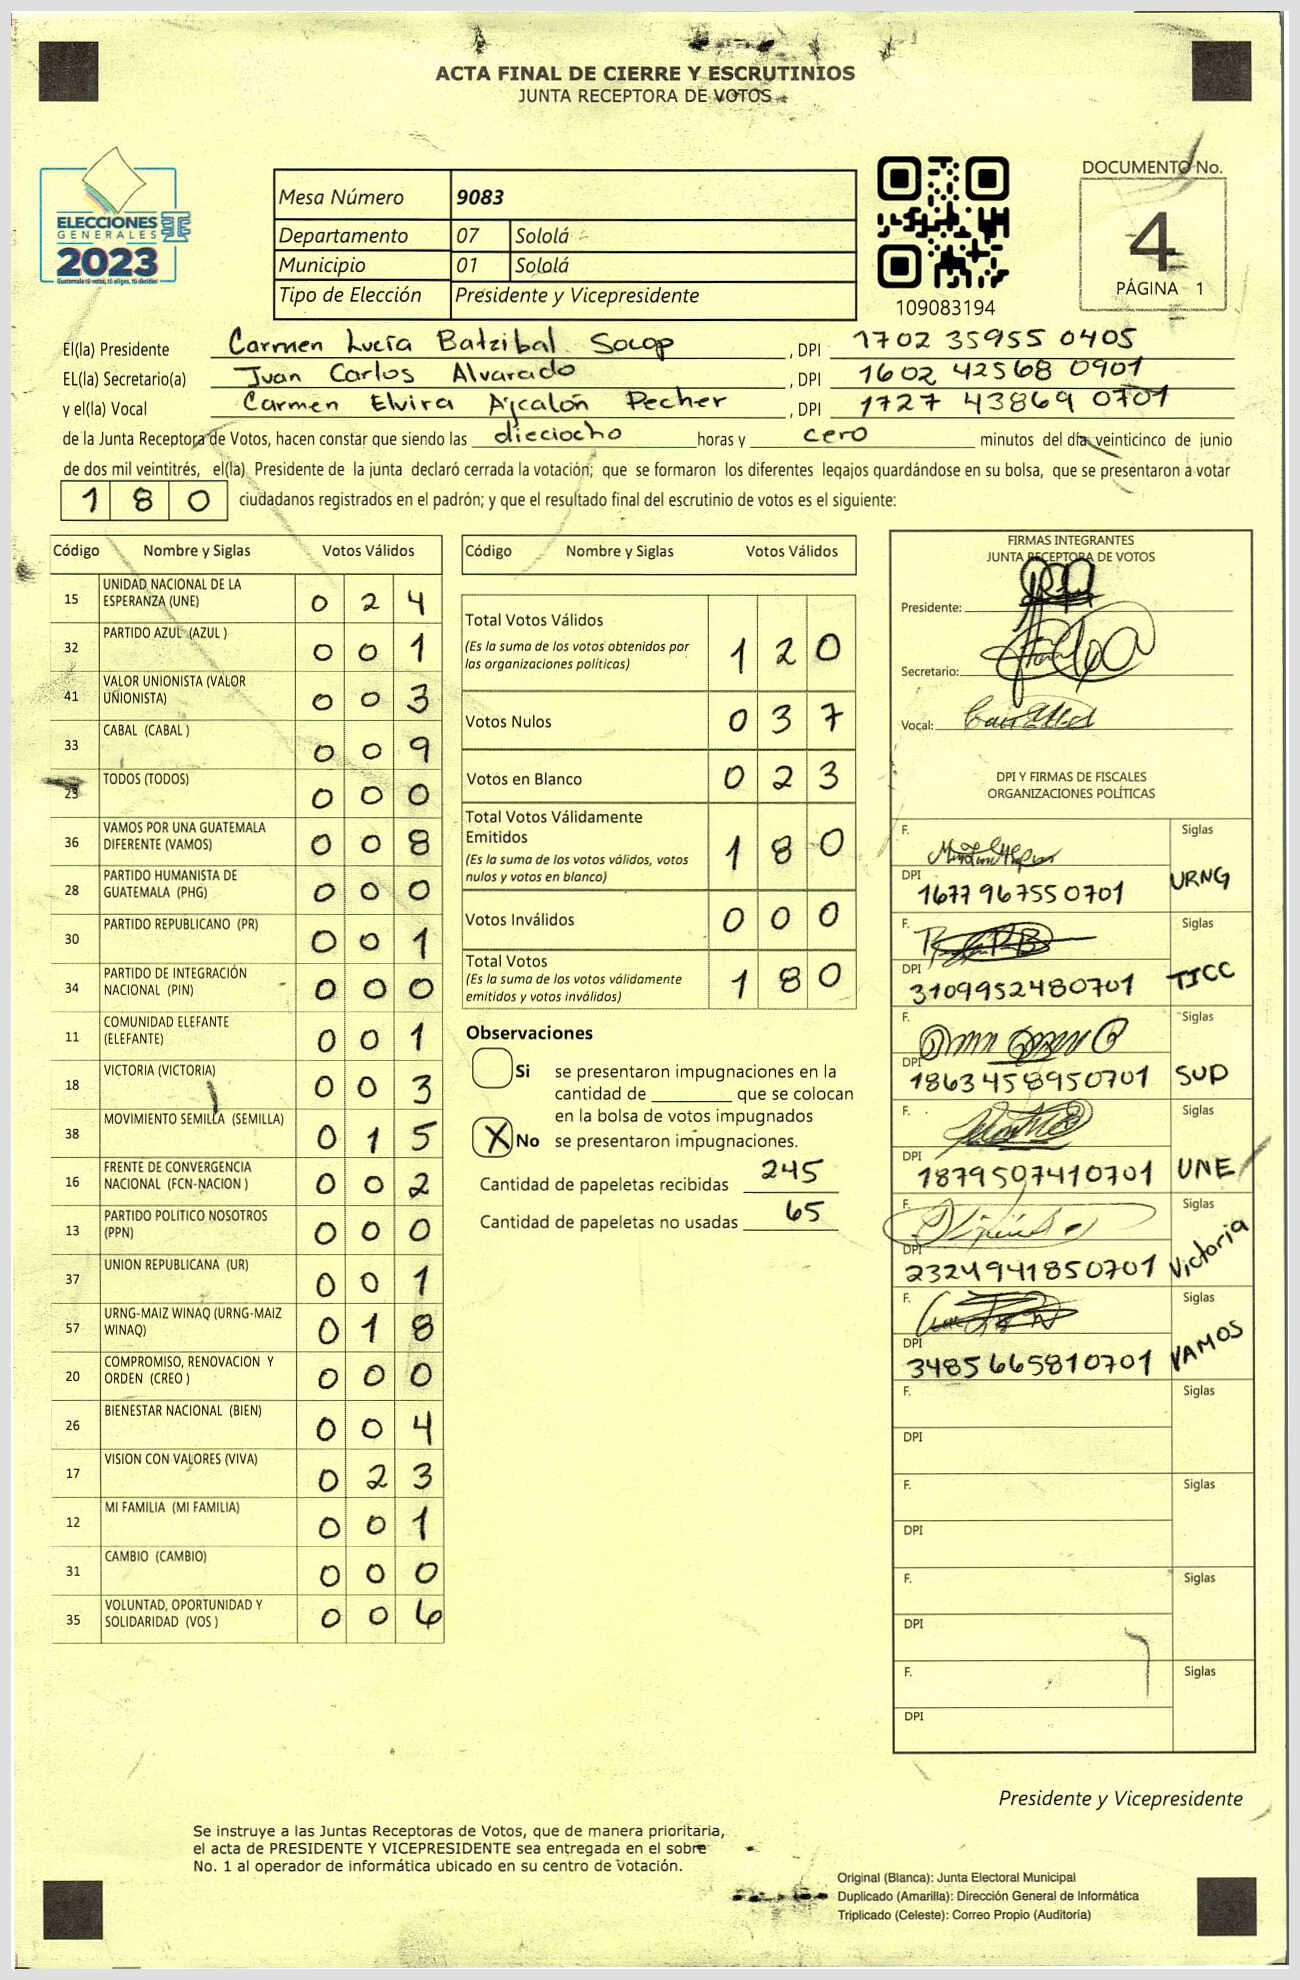 ACTA FINAL DE CIERRE Y ESCRUTINIOS
JUNTA RECEPTORA DE VOTOS
ELECCIONES
GENERALES
2023
Guatemala tú votas, tú eliges, tú decides
TSE
Mesa Número 9083
Departamento 07 Sololá
Municipio 01 Sololá
Tipo de Elección Presidente y Vicepresidente
109083194
DOCUMENTO No.
4
PÁGINA 1
El(la) Presidente Carmen Lucía Batzibal Socop , DPI 1702 35955 0405
EL(la) Secretario(a) Juan Carlos Alvarado , DPI 1602 42568 0901
y el(la) Vocal Carmen Elvira Ajcalón Pecher , DPI 1727 43869 0701
de la Junta Receptora de Votos, hacen constar que siendo las dieciocho horas y cero minutos del día veinticinco de junio
de dos mil veintitrés, el(la) Presidente de la junta declaró cerrada la votación; que se formaron los diferentes legajos guardándose en su bolsa, que se presentaron a votar
180 ciudadanos registrados en el padrón; y que el resultado final del escrutinio de votos es el siguiente:
Código Nombre y Siglas Votos Válidos
15 UNIDAD NACIONAL DE LA ESPERANZA (UNE) 0 2 4
32 PARTIDO AZUL (AZUL ) 0 0 1
41 VALOR UNIONISTA (VALOR UNIONISTA) 0 0 3
33 CABAL (CABAL ) 0 0 9
23 TODOS (TODOS) 0 0 0
36 VAMOS POR UNA GUATEMALA DIFERENTE (VAMOS) 0 0 8
28 PARTIDO HUMANISTA DE GUATEMALA (PHG) 0 0 0
30 PARTIDO REPUBLICANO (PR) 0 0 1
34 PARTIDO DE INTEGRACIÓN NACIONAL (PIN) 0 0 0
11 COMUNIDAD ELEFANTE (ELEFANTE) 0 0 1
18 VICTORIA (VICTORIA) 0 0 3
38 MOVIMIENTO SEMILLA (SEMILLA) 0 1 5
16 FRENTE DE CONVERGENCIA NACIONAL (FCN-NACION ) 0 0 2
13 PARTIDO POLITICO NOSOTROS (PPN) 0 0 0
37 UNION REPUBLICANA (UR) 0 0 1
57 URNG-MAIZ WINAQ (URNG-MAIZ WINAQ) 0 1 8
20 COMPROMISO, RENOVACION Y ORDEN (CREO ) 0 0 0
26 BIENESTAR NACIONAL (BIEN) 0 0 4
17 VISION CON VALORES (VIVA) 0 2 3
12 MI FAMILIA (MI FAMILIA) 0 0 1
31 CAMBIO (CAMBIO) 0 0 0
35 VOLUNTAD, OPORTUNIDAD Y SOLIDARIDAD (VOS ) 0 0 6
Código Nombre y Siglas Votos Válidos
Total Votos Válidos 1 2 0
(Es la suma de los votos obtenidos por
las organizaciones políticas)
Votos Nulos 0 3 7
Votos en Blanco 0 2 3
Total Votos Válidamente
Emitidos 1 8 0
(Es la suma de los votos válidos, votos
nulos y votos en blanco)
Votos Inválidos 0 0 0
Total Votos 1 8 0
(Es la suma de los votos válidamente
emitidos y votos inválidos)
Observaciones
Si se presentaron impugnaciones en la
cantidad de ________ que se colocan
en la bolsa de votos impugnados
X No se presentaron impugnaciones.
Cantidad de papeletas recibidas 245
Cantidad de papeletas no usadas 65
FIRMAS INTEGRANTES
JUNTA RECEPTORA DE VOTOS
Presidente:
Secretario:
Vocal:
DPI Y FIRMAS DE FISCALES
ORGANIZACIONES POLÍTICAS
F. Siglas
DPI 1677 96755 0701 URNG
F. Siglas
DPI 3109952480701 TICC
F. Siglas
DPI 1863458950701 SUD
F. Siglas
DPI 1879507410701 UNE
F. Siglas
DPI 2324941850701 Victoria
F. Siglas
DPI 3485665810701 VAMOS
F. Siglas
DPI
F. Siglas
DPI
F. Siglas
DPI
F. Siglas
DPI
Presidente y Vicepresidente
Se instruye a las Juntas Receptoras de Votos, que de manera prioritaria,
el acta de PRESIDENTE Y VICEPRESIDENTE sea entregada en el sobre
No. 1 al operador de informática ubicado en su centro de votación.
Original (Blanca): Junta Electoral Municipal
Duplicado (Amarilla): Dirección General de Informática
Triplicado (Celeste): Correo Propio (Auditoría)